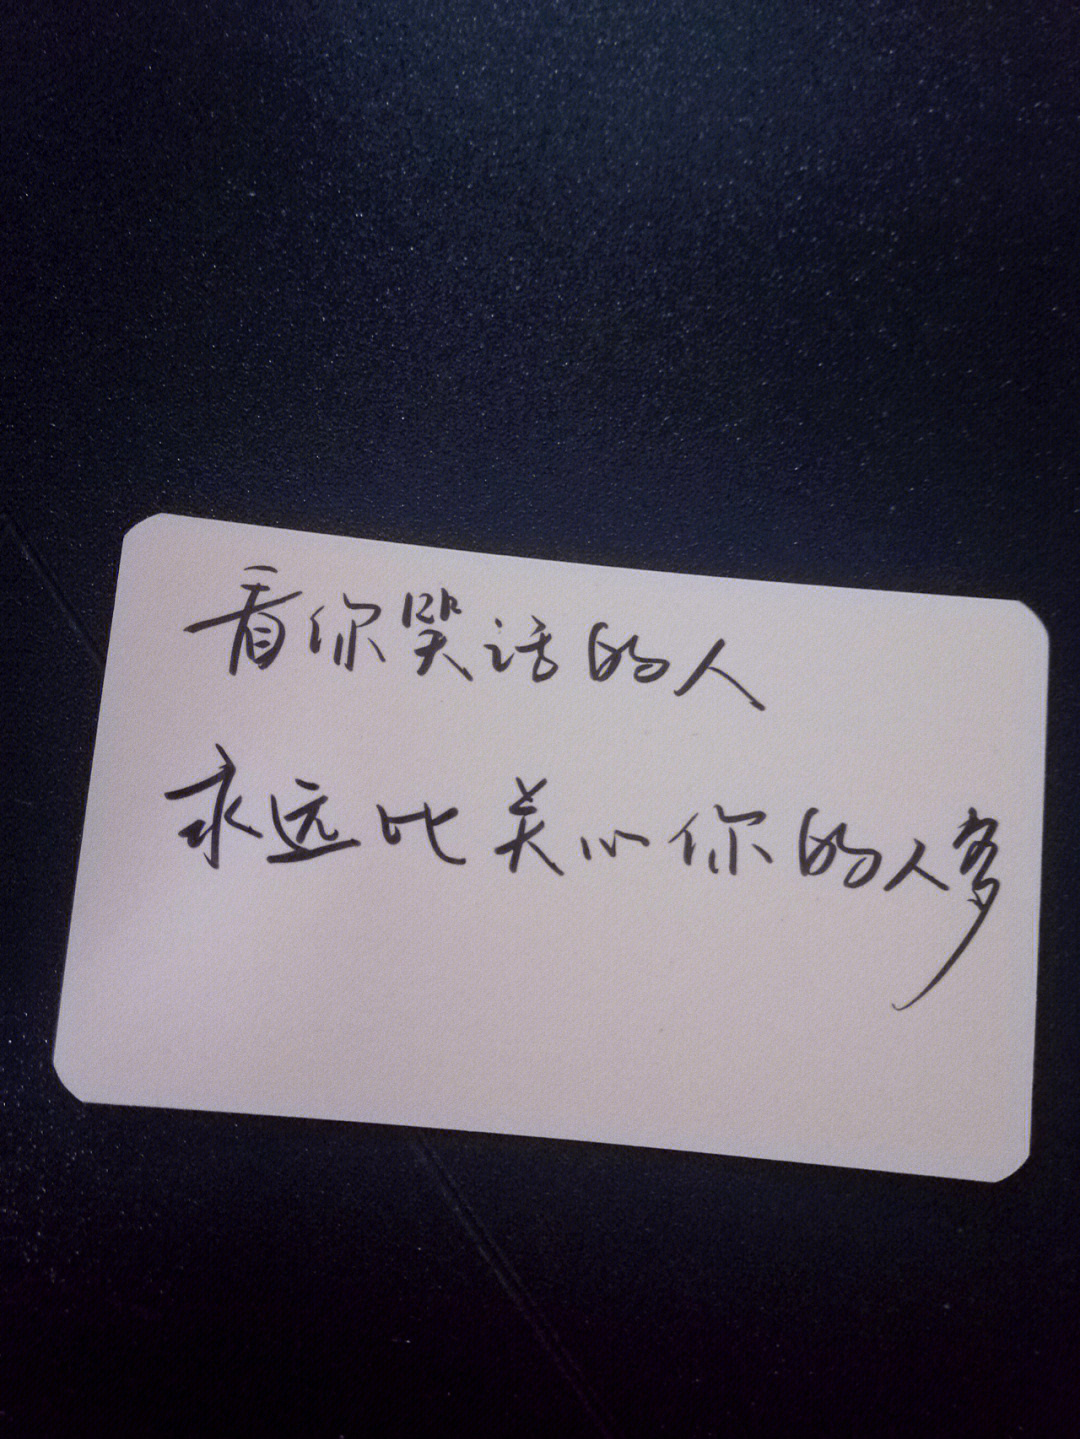 看你笑话的人
永远比关心你的人多